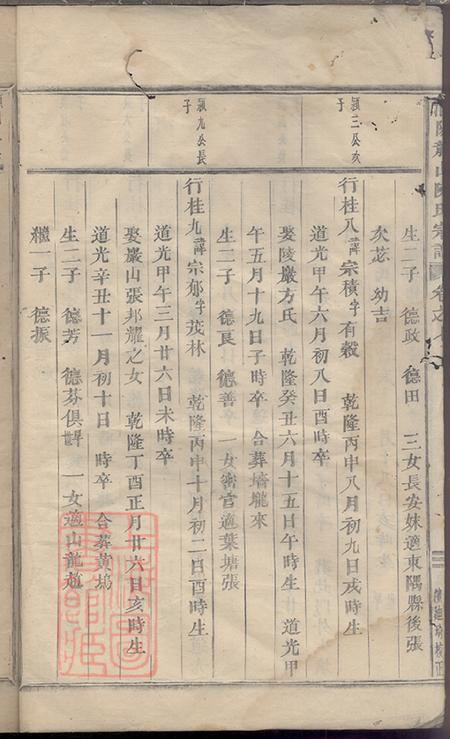 龍山陳氏宗譜
生二子 德政 德田 三女長安妹適東隅縣後張
次蕊 幼吉
穎三公次子
行桂八諱宗積字有穀 乾隆丙申八月初九日戌時生
道光甲午六月初八日酉時卒
娶陵巖方氏 乾隆癸丑六月十五日午時生 道光甲
午五月十九日子時卒 合葬墻壠來
生二子 德良 德善 一女密官適葉塘張
穎九公長子
行桂九諱宗郁字茂林 乾隆丙申十月初二日酉時生
道光甲午三月廿六日未時卒
娶巖山張邦耀之女 乾隆丁酉正月廿六日亥時生
道光辛丑十一月初十日 時卒 合葬黃塢
生二子 德芳 德芬俱 一女適山龍
繼一子 德振